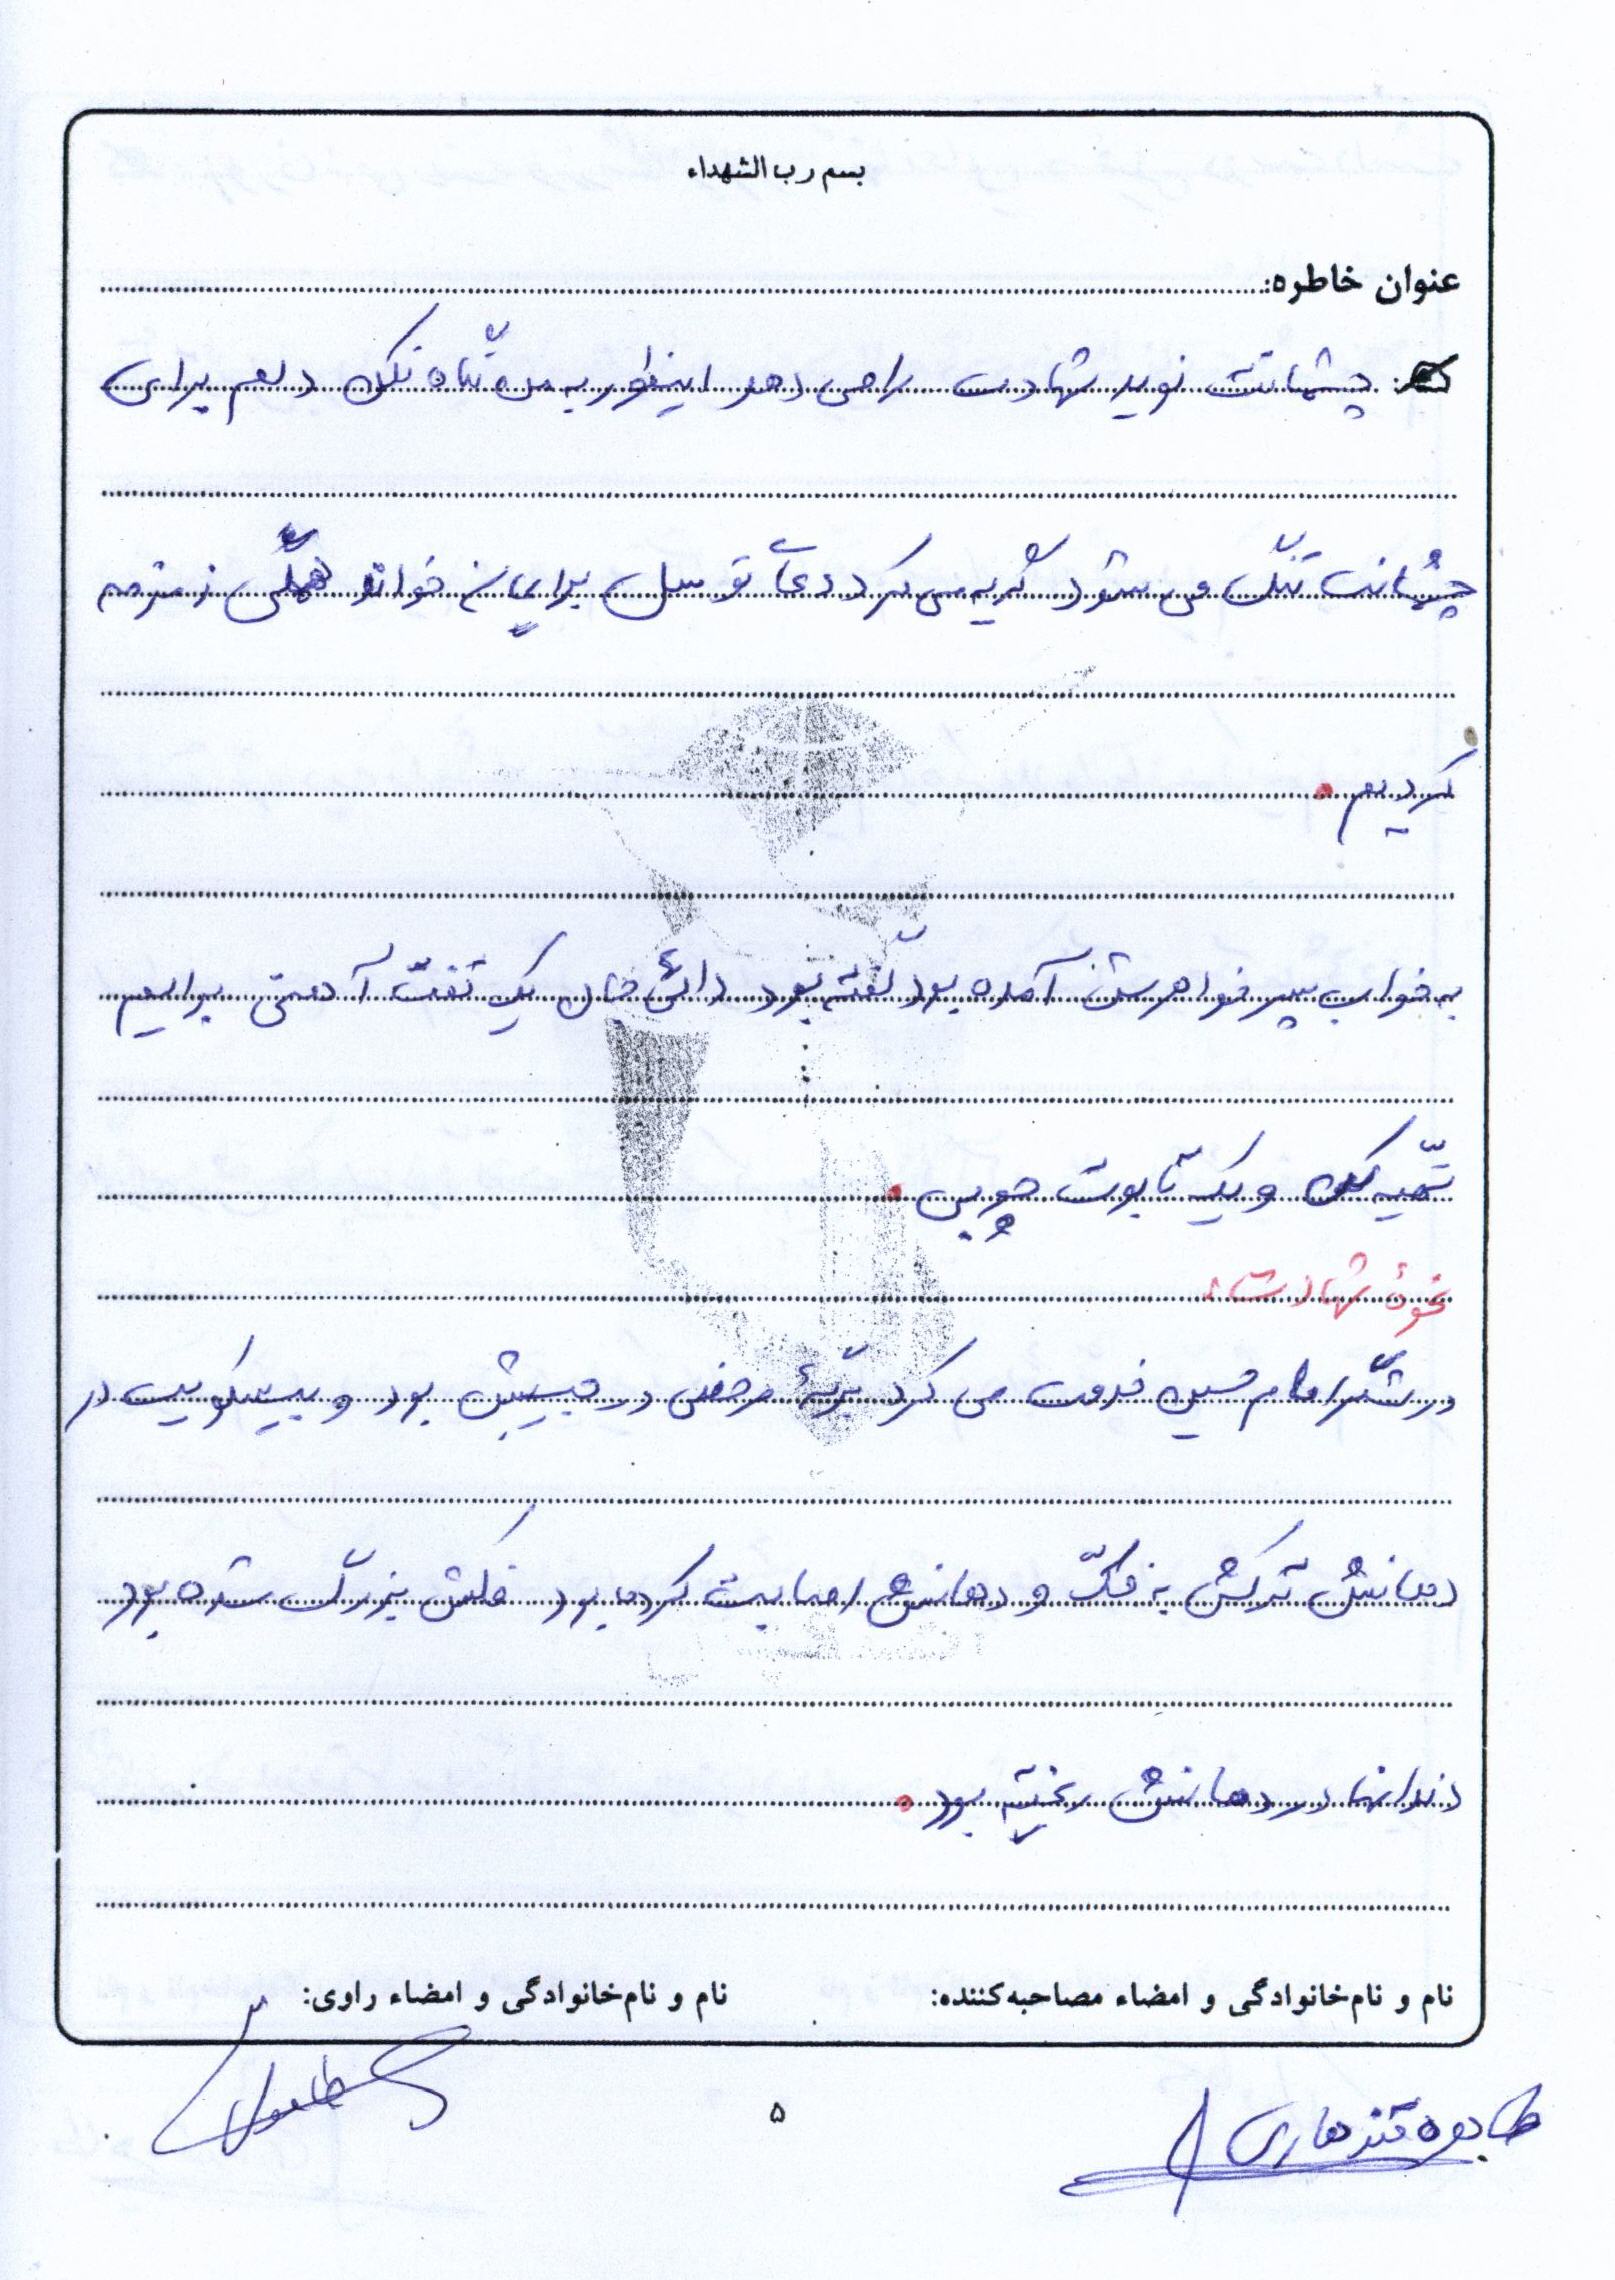 بسم رب الشهداء
عنوان خاطره:
چشمانت نوید شهادت را می دهد اینطور به من نگاه نکن دلم برای
چشمانت تنگ می شود گریه می کرد دعای توسل برایمان خواند همگی زمزمه
کردیم.
به خواب پسر خواهرش آمده بود گفته بود دائی جان یک تخت آهنی برایم
تهیه کن و یک تابوت چوبی.
نحوۀ شهادت:
در لشگر امام حسین خدمت می کرد برگۀ مرخصی در جیبش بود و بیسکویت در
دهانش ترکش به فک و دهانش اصابت کرده بود فکش بزرگ شده بود
دندانها در دهانش ریخته بود.
نام و نام‌خانوادگی و امضاء مصاحبه‌کننده:
نام و نام‌خانوادگی و امضاء راوی:
طاهره قندهاری
۵